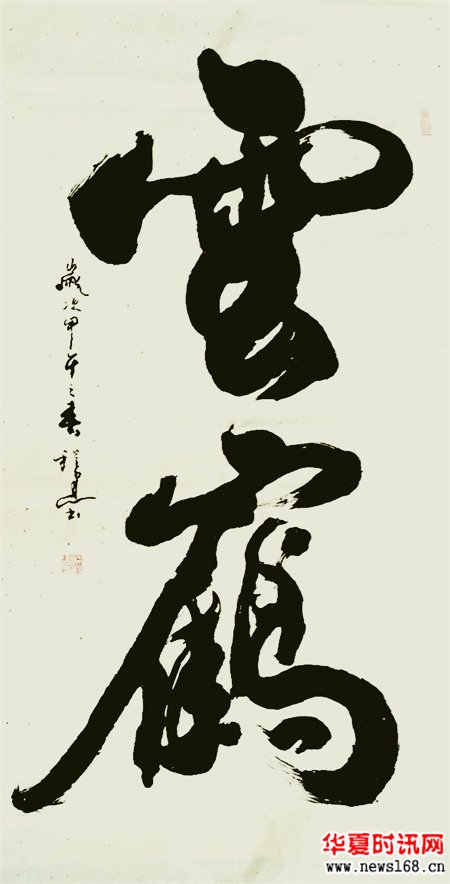 雲鶴
歲次甲午之春程
华夏时讯网
www.news168.cn